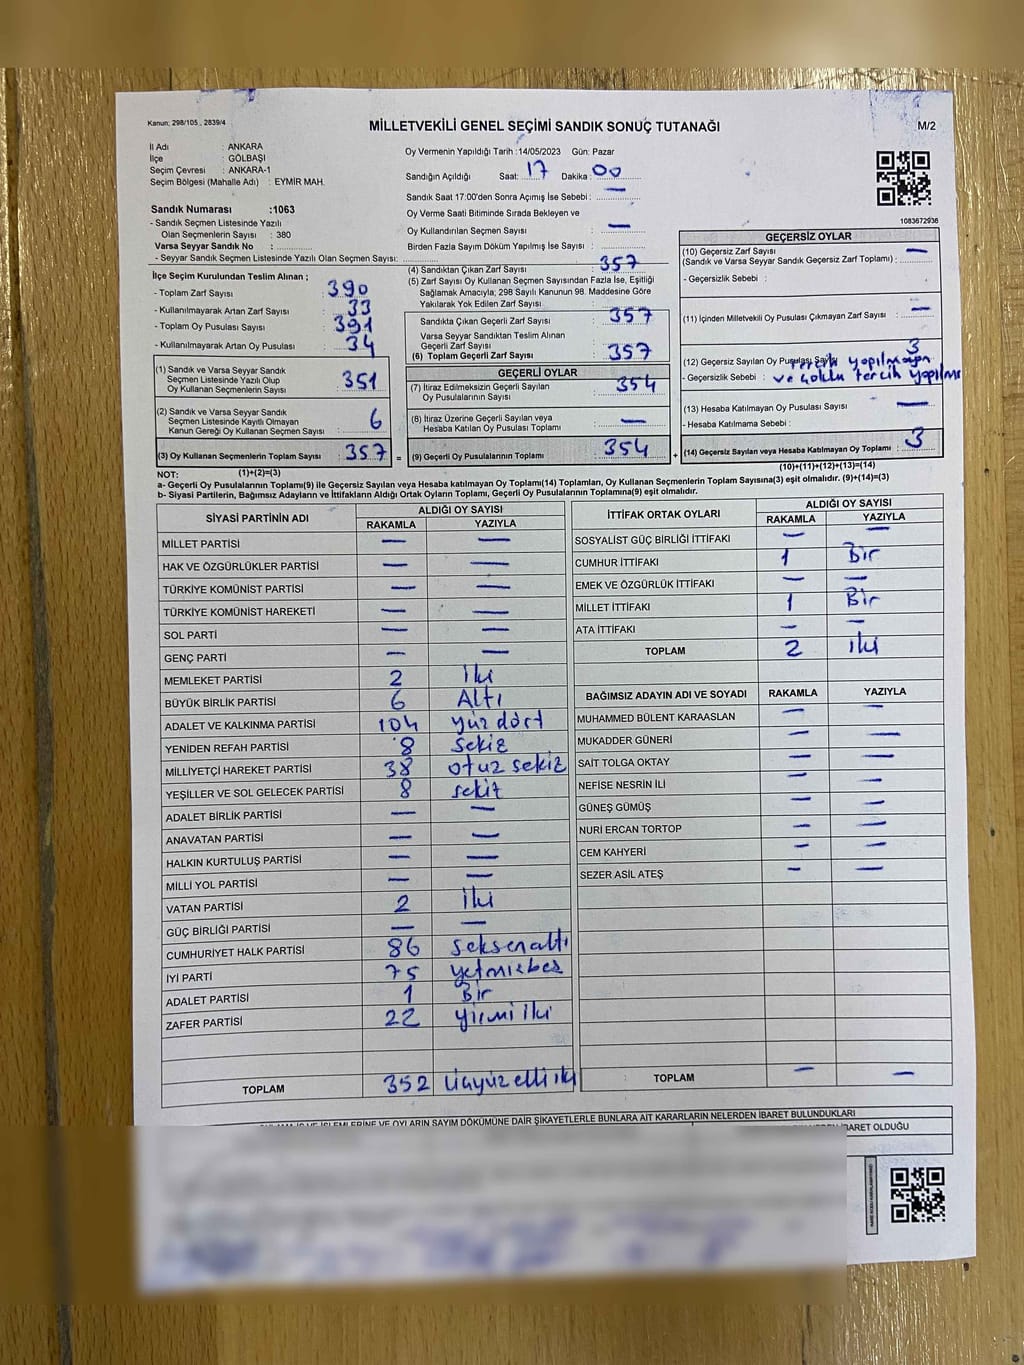 Kanun; 298/105 , 2839/4
MİLLETVEKİLİ GENEL SEÇİMİ SANDIK SONUÇ TUTANAĞI
M/2
İl Adı : ANKARA
İlçe : GÖLBAŞI
Seçim Çevresi : ANKARA-1
Seçim Bölgesi (Mahalle Adı) : EYMİR MAH.
Oy Vermenin Yapıldığı Tarih :14/05/2023 Gün: Pazar
Sandığın Açıldığı Saat: 17 Dakika: 00
Sandık Saat 17:00'den Sonra Açımış İse Sebebi : —
Oy Verme Saati Bitiminde Sırada Bekleyen ve
Oy Kullandırılan Seçmen Sayısı : —
Birden Fazla Sayım Döküm Yapılmış İse Sayısı :
1083672936
Sandık Numarası :1063
- Sandık Seçmen Listesinde Yazılı
Olan Seçmenlerin Sayısı : 380
Varsa Seyyar Sandık No :
- Seyyar Sandık Seçmen Listesinde Yazılı Olan Seçmen Sayısı:
İlçe Seçim Kurulundan Teslim Alınan ;
- Toplam Zarf Sayısı : 390
- Kullanılmayarak Artan Zarf Sayısı : 33
- Toplam Oy Pusulası Sayısı : 391
- Kullanılmayarak Artan Oy Pusulası : 34
(1) Sandık ve Varsa Seyyar Sandık
Seçmen Listesinde Yazılı Olup
Oy Kullanan Seçmenlerin Sayısı : 351
(2) Sandık ve Varsa Seyyar Sandık
Seçmen Listesinde Kayıtlı Olmayan
Kanun Gereği Oy Kullanan Seçmen Sayısı : 6
(3) Oy Kullanan Seçmenlerin Toplam Sayısı : 357 =
(1)+(2)=(3)
(4) Sandıktan Çıkan Zarf Sayısı : 357
(5) Zarf Sayısı Oy Kullanan Seçmen Sayısından Fazla İse, Eşitliği
Sağlamak Amacıyla; 298 Sayılı Kanunun 98. Maddesine Göre
Yakılarak Yok Edilen Zarf Sayısı :
Sandıkta Çıkan Geçerli Zarf Sayısı : 357
Varsa Seyyar Sandıktan Teslim Alınan
Geçerli Zarf Sayısı :
(6) Toplam Geçerli Zarf Sayısı : 357
GEÇERLİ OYLAR
(7) İtiraz Edilmeksizin Geçerli Sayılan
Oy Pusulalarının Sayısı : 354
(8) İtiraz Üzerine Geçerli Sayılan veya
Hesaba Katılan Oy Pusulası Toplamı : —
(9) Geçerli Oy Pusulalarının Toplamı : 354 +
GEÇERSİZ OYLAR
(10) Geçersiz Zarf Sayısı —
(Sandık ve Varsa Seyyar Sandık Geçersiz Zarf Toplamı) :
- Geçersizlik Sebebi :
(11) İçinden Milletvekili Oy Pusulası Çıkmayan Zarf Sayısı : —
(12) Geçersiz Sayılan Oy Pusulası Sayısı 3
- Geçersizlik Sebebi : tercih yapılmayan
ve çoklu tercih yapılma
(13) Hesaba Katılmayan Oy Pusulası Sayısı : —
- Hesaba Katılmama Sebebi :
(14) Geçersiz Sayılan veya Hesaba Katılmayan Oy Toplamı : 3
(10)+(11)+(12)+(13)=(14)
NOT:
a- Geçerli Oy Pusulalarının Toplamı(9) ile Geçersiz Sayılan veya Hesaba katılmayan Oy Toplamı(14) Toplamları, Oy Kullanan Seçmenlerin Toplam Sayısına(3) eşit olmalıdır. (9)+(14)=(3)
b- Siyasi Partilerin, Bağımsız Adayların ve İttifakların Aldığı Ortak Oyların Toplamı, Geçerli Oy Pusulalarının Toplamına(9) eşit olmalıdır.
SİYASİ PARTİNİN ADI ALDIĞI OY SAYISI
RAKAMLA YAZIYLA
MİLLET PARTİSİ — —
HAK VE ÖZGÜRLÜKLER PARTİSİ — —
TÜRKİYE KOMÜNİST PARTİSİ — —
TÜRKİYE KOMÜNİST HAREKETİ — —
SOL PARTİ — —
GENÇ PARTİ — —
MEMLEKET PARTİSİ 2 iki
BÜYÜK BİRLİK PARTİSİ 6 Altı
ADALET VE KALKINMA PARTİSİ 104 yüz dört
YENİDEN REFAH PARTİSİ 8 sekiz
MİLLİYETÇİ HAREKET PARTİSİ 38 otuz sekiz
YEŞİLLER VE SOL GELECEK PARTİSİ 8 sekiz
ADALET BİRLİK PARTİSİ — —
ANAVATAN PARTİSİ — —
HALKIN KURTULUŞ PARTİSİ — —
MİLLİ YOL PARTİSİ — —
VATAN PARTİSİ 2 iki
GÜÇ BİRLİĞİ PARTİSİ — —
CUMHURİYET HALK PARTİSİ 86 seksenaltı
İYİ PARTİ 75 yetmişbeş
ADALET PARTİSİ 1 Bir
ZAFER PARTİSİ 22 yirmi iki
TOPLAM 352 üçyüz elli iki
İTTİFAK ORTAK OYLARI ALDIĞI OY SAYISI
RAKAMLA YAZIYLA
SOSYALİST GÜÇ BİRLİĞİ İTTİFAKI — —
CUMHUR İTTİFAKI 1 Bir
EMEK VE ÖZGÜRLÜK İTTİFAKI — —
MİLLET İTTİFAKI 1 Bir
ATA İTTİFAKI — —
TOPLAM 2 iki
BAĞIMSIZ ADAYIN ADI VE SOYADI RAKAMLA YAZIYLA
MUHAMMED BÜLENT KARAASLAN — —
MUKADDER GÜNERİ — —
SAİT TOLGA OKTAY — —
NEFİSE NESRİN İLİ — —
GÜNEŞ GÜMÜŞ — —
NURİ ERCAN TORTOP — —
CEM KAHYERİ — —
SEZER ASİL ATEŞ — —
TOPLAM — —
İŞLEMLERİNE VE OYLARIN SAYIM DÖKÜMÜNE DAİR ŞİKAYETLERLE BUNLARA AİT KARARLARIN NELERDEN İBARET BULUNDUKLARI
İBARET OLDUĞU